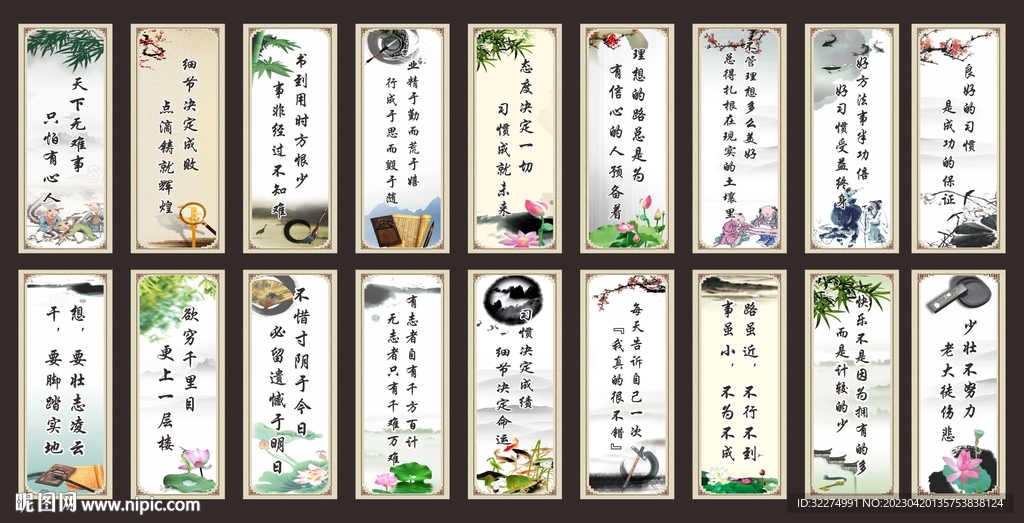 天下无难事
只怕有心人
细节决定成败
点滴铸就辉煌
书到用时方恨少
事非经过不知难
业精于勤而荒于嬉
行成于思而毁于随
态度决定一切
习惯成就未来
理想的路总是为
有信心的人预备着
不管理想多么美好
总得扎根在现实的土壤里
好方法事半功倍
好习惯受益终身
良好的习惯
是成功的保证
想，要壮志凌云
干，要脚踏实地
欲穷千里目
更上一层楼
不惜寸阴于今日
必留遗憾于明日
有志者自有千方百计
无志者只有千难万难
习惯决定成绩
细节决定命运
每天告诉自己一次
『我真的很不错』
路虽近，不行不到
事虽小，不为不成
快乐不是因为拥有的多
而是计较的少
少壮不努力
老大徒伤悲
昵图网 www.nipic.com
ID:32274991 NO:20230420135753838124